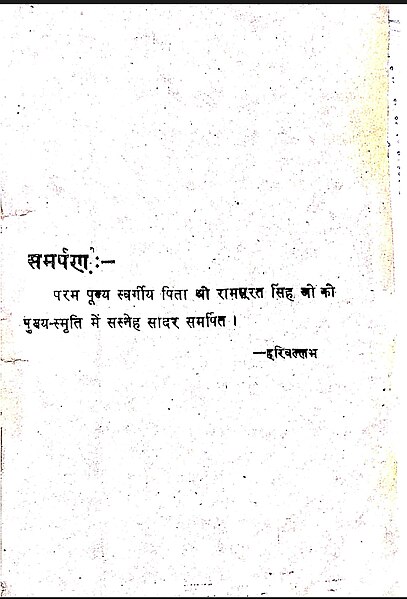 समर्पण :—
परम पूज्य स्वर्गीय पिता श्री रामसूरत सिंह जी की
पुण्य-स्मृति में सस्नेह सादर समर्पित ।
—हरिवल्लभ